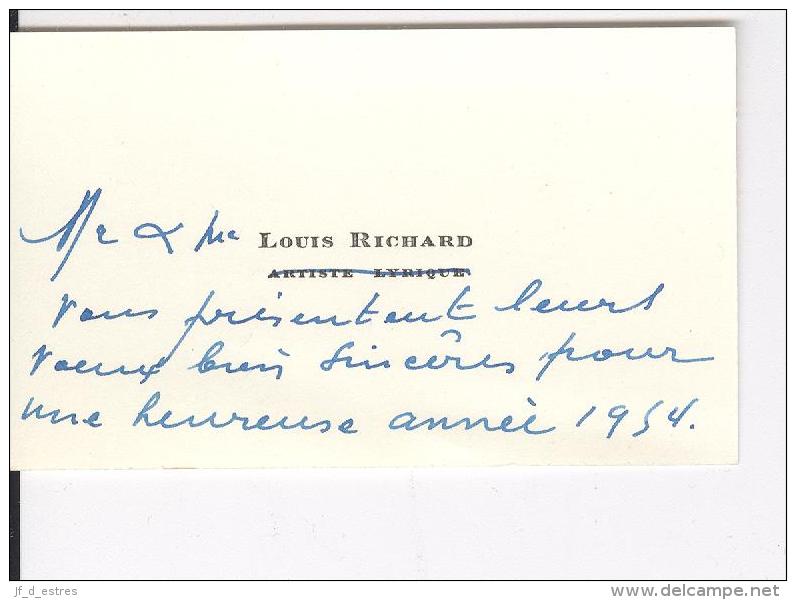 Mr & Me LOUIS RICHARD
ARTISTE LYRIQUE
vous présentent leurs
voeux bien sincêres pour
une heureuse année 1954.
jf_d_estres
www.delcampe.net